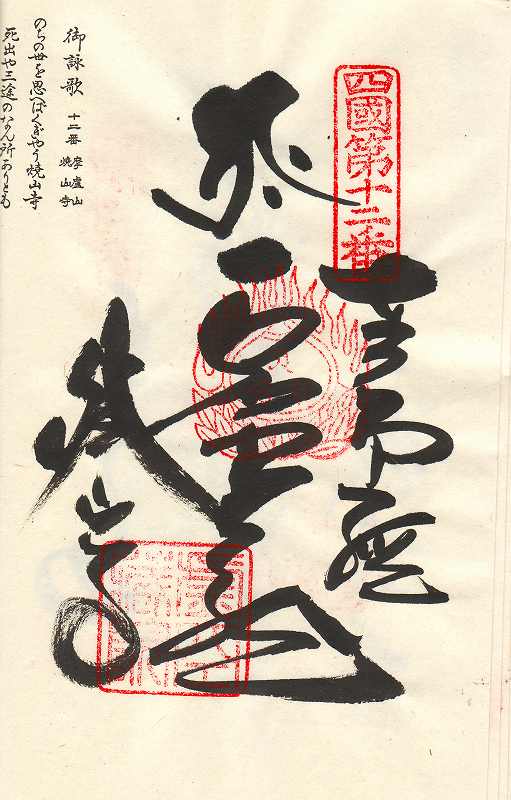 四國第十二番
奉納経
焼山寺
御詠歌 十二番 摩盧山 焼山寺
のちの世を思へばくぎやう焼山寺
死出や三途のなん所ありとも